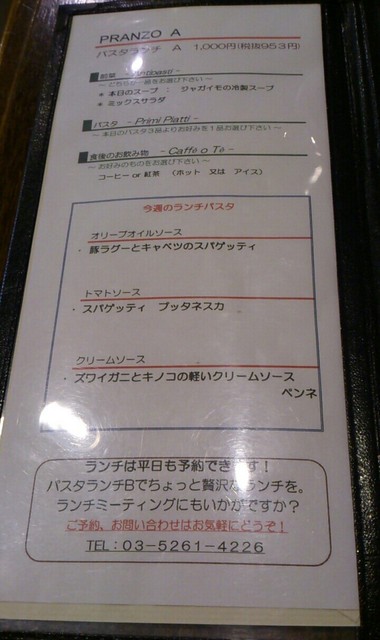 PRANZO A
パスタランチ A 1,000円(税抜953円)
前菜 -Antipasti-
～どちらか一品をお選び下さい～
＊本日のスープ ： ジャガイモの冷製スープ
＊ミックスサラダ
パスタ -Primi Piatti-
～本日のパスタ3品よりお好みを1品お選び下さい～
食後のお飲み物 -Caffè o Tè-
～お好みのものをお選び下さい～
コーヒー or 紅茶 （ホット 又は アイス）
今週のランチパスタ
オリーブオイルソース
・豚ラグーとキャベツのスパゲッティ
トマトソース
・スパゲッティ プッタネスカ
クリームソース
・ズワイガニとキノコの軽いクリームソース
ペンネ
ランチは平日も予約できます！
パスタランチBでちょっと贅沢なランチを。
ランチミーティングにもいかがですか？
ご予約、お問い合わせはお気軽にどうぞ！
TEL：03-5261-4226